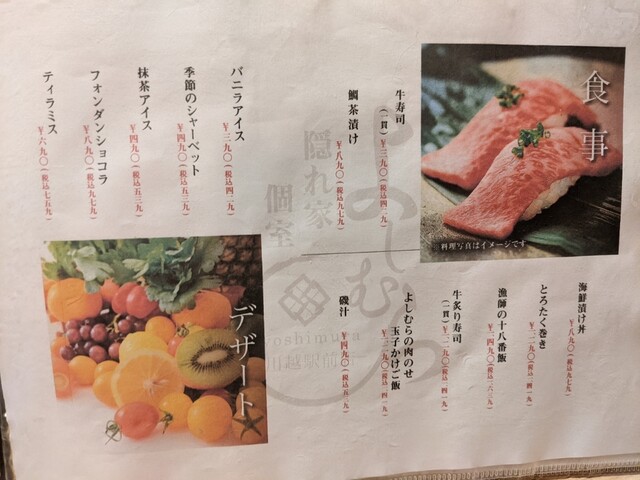 食事
料理写真はイメージです
牛寿司
(一貫) ¥三九〇(税込四二九)
鯛茶漬け
¥八九〇(税込九七九)
海鮮漬け丼
¥八九〇(税込九七九)
とろたく巻き
¥一、二九〇(税込一、四一九)
漁師の十八番飯
¥一、四九〇(税込一、六三九)
牛炙り寿司
(一貫) ¥一、二九〇(税込一、四一九)
よしむらの肉のせ
玉子かけご飯
¥一、二九〇(税込一、四一九)
磯汁
¥四九〇(税込五三九)
バニラアイス
¥三九〇(税込四二九)
季節のシャーベット
¥四九〇(税込五三九)
抹茶アイス
¥四九〇(税込五三九)
フォンダンショコラ
¥八九〇(税込九七九)
ティラミス
¥六九〇(税込七五九)
デザート
隠れ家
個室
よしむら
yoshimura
川越駅前